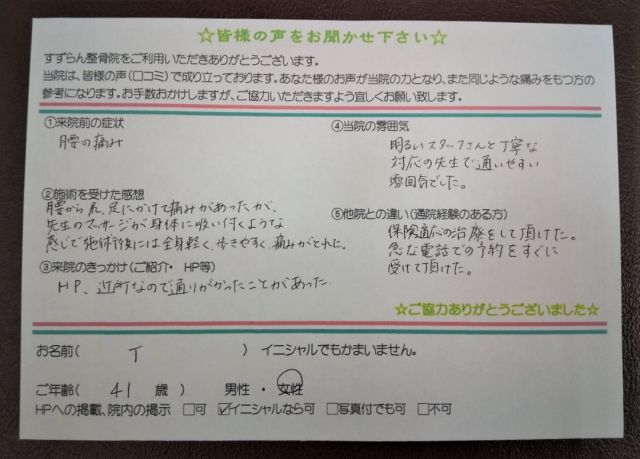 ☆皆様の声をお聞かせ下さい☆
すずらん整骨院をご利用いただきありがとうございます。
当院は、皆様の声(口コミ)で成り立っております。あなた様のお声が当院の力となり、また同じような痛みをもつ方の
参考になります。お手数おかけしますが、ご協力いただきますよう宜しくお願い致します。
①来院前の症状
腰の痛み
②施術を受けた感想
腰から尻、足にかけて痛みがあったが、
先生のマッサージが身体に吸い付くような
感じで施術後には全身軽く、歩きやすく、痛みがとれた。
③来院のきっかけ(ご紹介・ HP等)
HP、近所なので通りがかったことがあった
④当院の雰囲気
明るいスタッフさんと丁寧な
対応の先生で通いやすい
雰囲気でした。
⑤他院との違い(通院経験のある方)
保険適応の治療をして頂けた。
急な電話での予約をすぐに
受けて頂けた。
☆ご協力ありがとうございました☆
お名前( T ) イニシャルでもかまいません。
ご年齢( 41 歳 ) 男性 ・ 女性
HPへの掲載、院内の掲示 □可 ☑イニシャルなら可 □写真付でも可 □不可